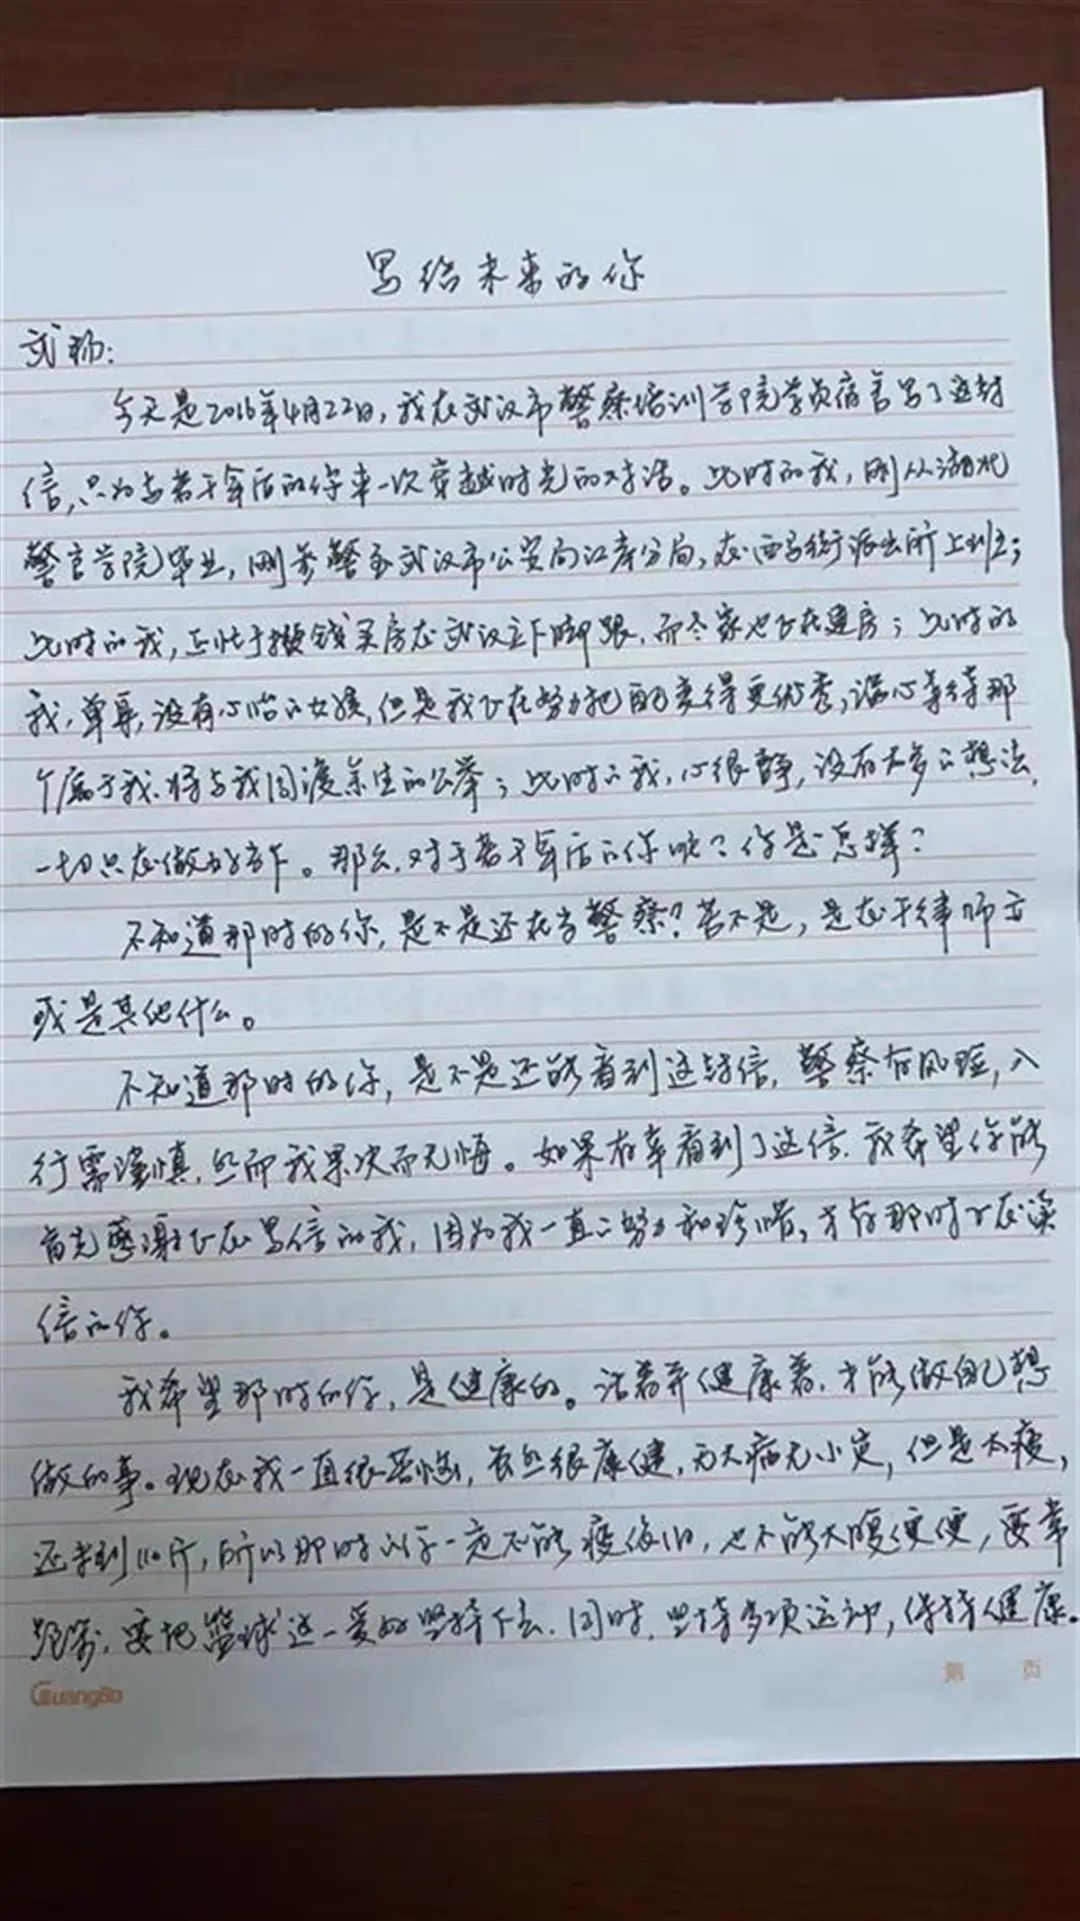 写给未来的你
武杨:
今天是2016年4月22日,我在武汉市警察培训学院学员宿舍写了这封
信,只为与若干年后的你来一次穿越时光的对话。此时的我,刚从湖北
警官学院毕业,刚参警至武汉市公安局江岸分局,在西马街派出所上班;
此时的我,正忙于攒钱买房在武汉立下脚跟,而老家也正在建房;此时的
我,单身,没有心怡的女孩,但是我正在努力把自己变得更优秀,满心等待那
个属于我、将与我同渡余生的公举;此时的我,心很静,没有太多的想法,
一切只在做好当下。那么,对于若干年后的你呢?你是怎样?
不知道那时的你,是不是还在当警察?若不是,是在干律师亦
或是其他什么。
不知道那时的你,是不是还能看到这封信,警察有风险,入
行需谨慎,然而我果决而无悔。如果有幸看到了这信,我希望你能
首先感谢正在写信的我,因为我一直的努力和珍惜,才有那时正在读
信的你。
我希望那时的你,是健康的。活着并健康着,才能做自己想
做的事。现在我一直很苦恼,虽然很康健,无大病无小灾,但是太瘦,
还未到110斤,所以那时的你一定不能瘦依旧,也不能大腹便便,要常
跑步,要把篮球这一爱好坚持下去,同时,坚持多项运动,保持健康。
GuangBo
第 页